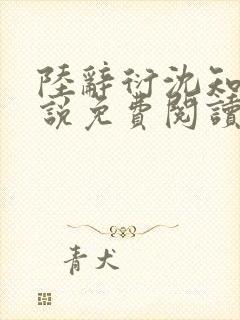 陸辭衍沈知
說免費閱讀
青犬